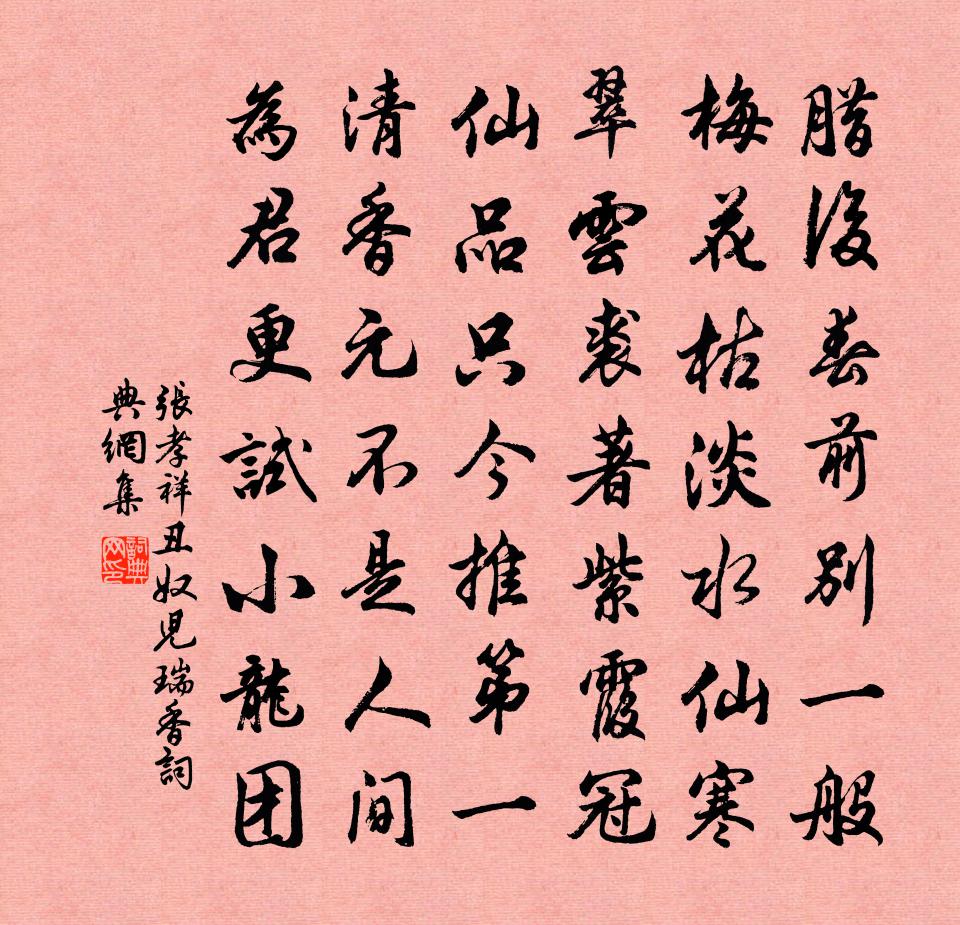 腊後春前別一般
梅花枯淡水仙寒
翠雲裘著紫霞冠
仙品只今推第一
清香元不是人间
為君更試小龍团
張孝祥丑奴児瑞香詞
典網集
詞典
网印